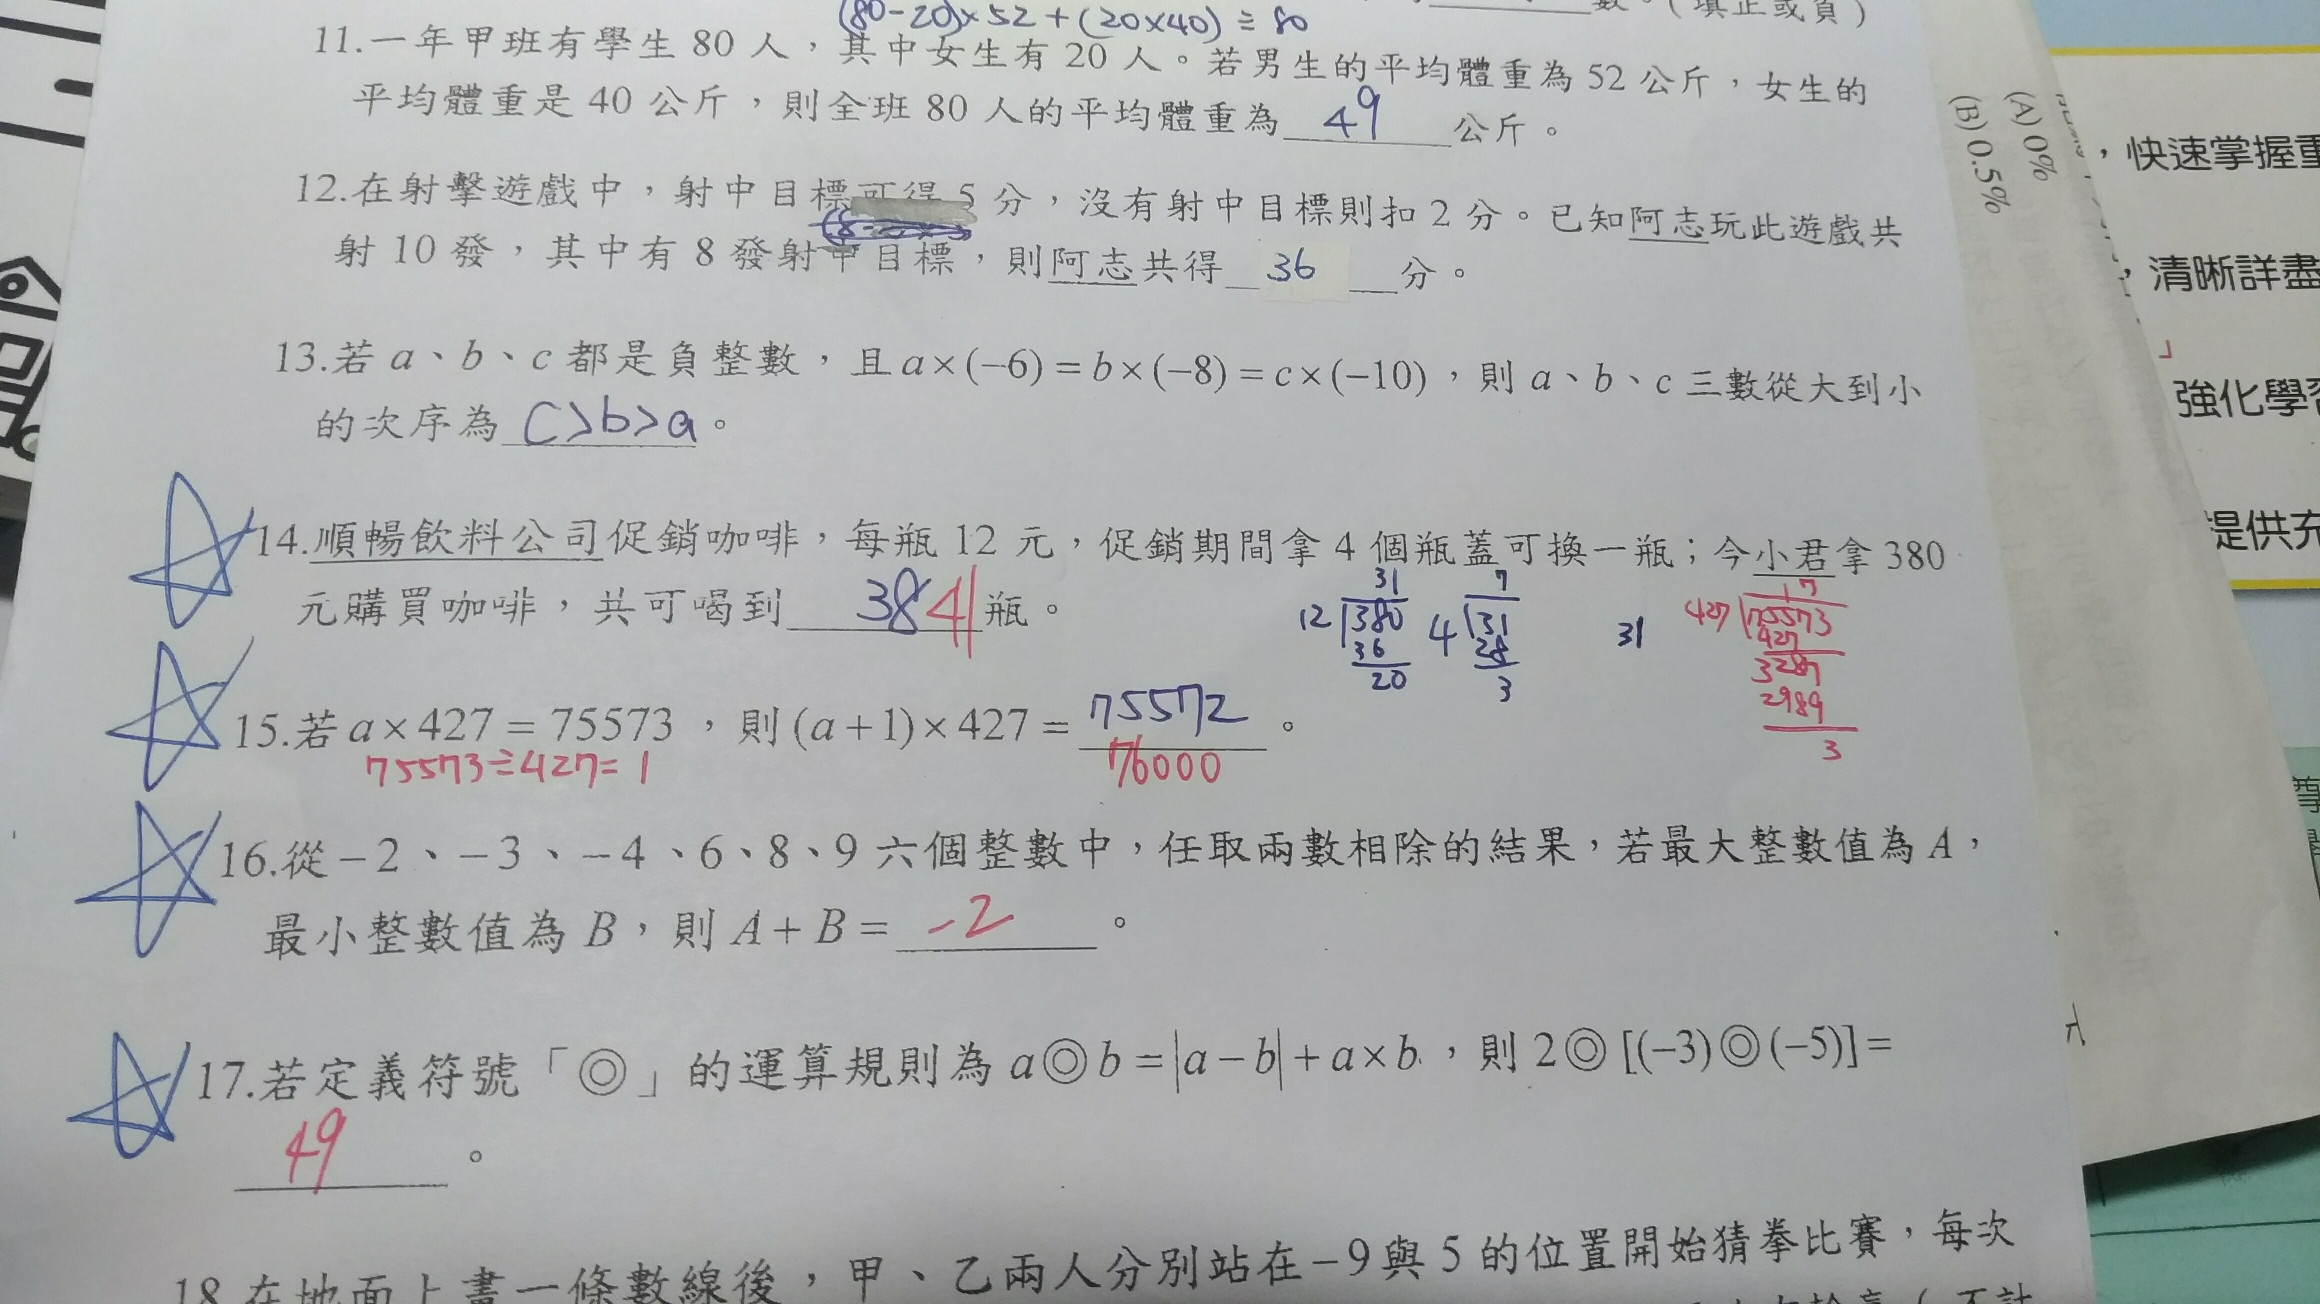 (80-20)×52+(20×40)÷80
數。(填正或負)
11.一年甲班有學生 80 人，其中女生有 20 人。若男生的平均體重為 52 公斤，女生的
平均體重是 40 公斤，則全班 80 人的平均體重為 49 公斤。
12.在射擊遊戲中，射中目標可得 5 分，沒有射中目標則扣 2 分。已知阿志玩此遊戲共
射 10 發，其中有 8 發射中目標，則阿志共得 36 分。
13.若 a、b、c 都是負整數，且 a×(−6)=b×(−8)=c×(−10)，則 a、b、c 三數從大到小
的次序為 c>b>a。
14.順暢飲料公司促銷咖啡，每瓶 12 元，促銷期間拿 4 個瓶蓋可換一瓶；今小君拿 380
元購買咖啡，共可喝到 38 41 瓶。
31
12 380
36
20
7
4 31
28
3
31
17
427 75573
427
3287
2989
3
15.若 a×427=75573，則 (a+1)×427= 75572。
75573÷427=1
76000
16.從 −2、−3、−4、6、8、9 六個整數中，任取兩數相除的結果，若最大整數值為 A，
最小整數值為 B，則 A+B= -2。
17.若定義符號「◎」的運算規則為 a◎b=|a−b|+a×b，則 2◎[(−3)◎(−5)]=
49。
18.在地面上畫一條數線後，甲、乙兩人分別站在 −9 與 5 的位置開始猜拳比賽，每次
(A) 0%
(B) 0.5%
，快速掌握重
，清晰詳盡
」
強化學習
提供充